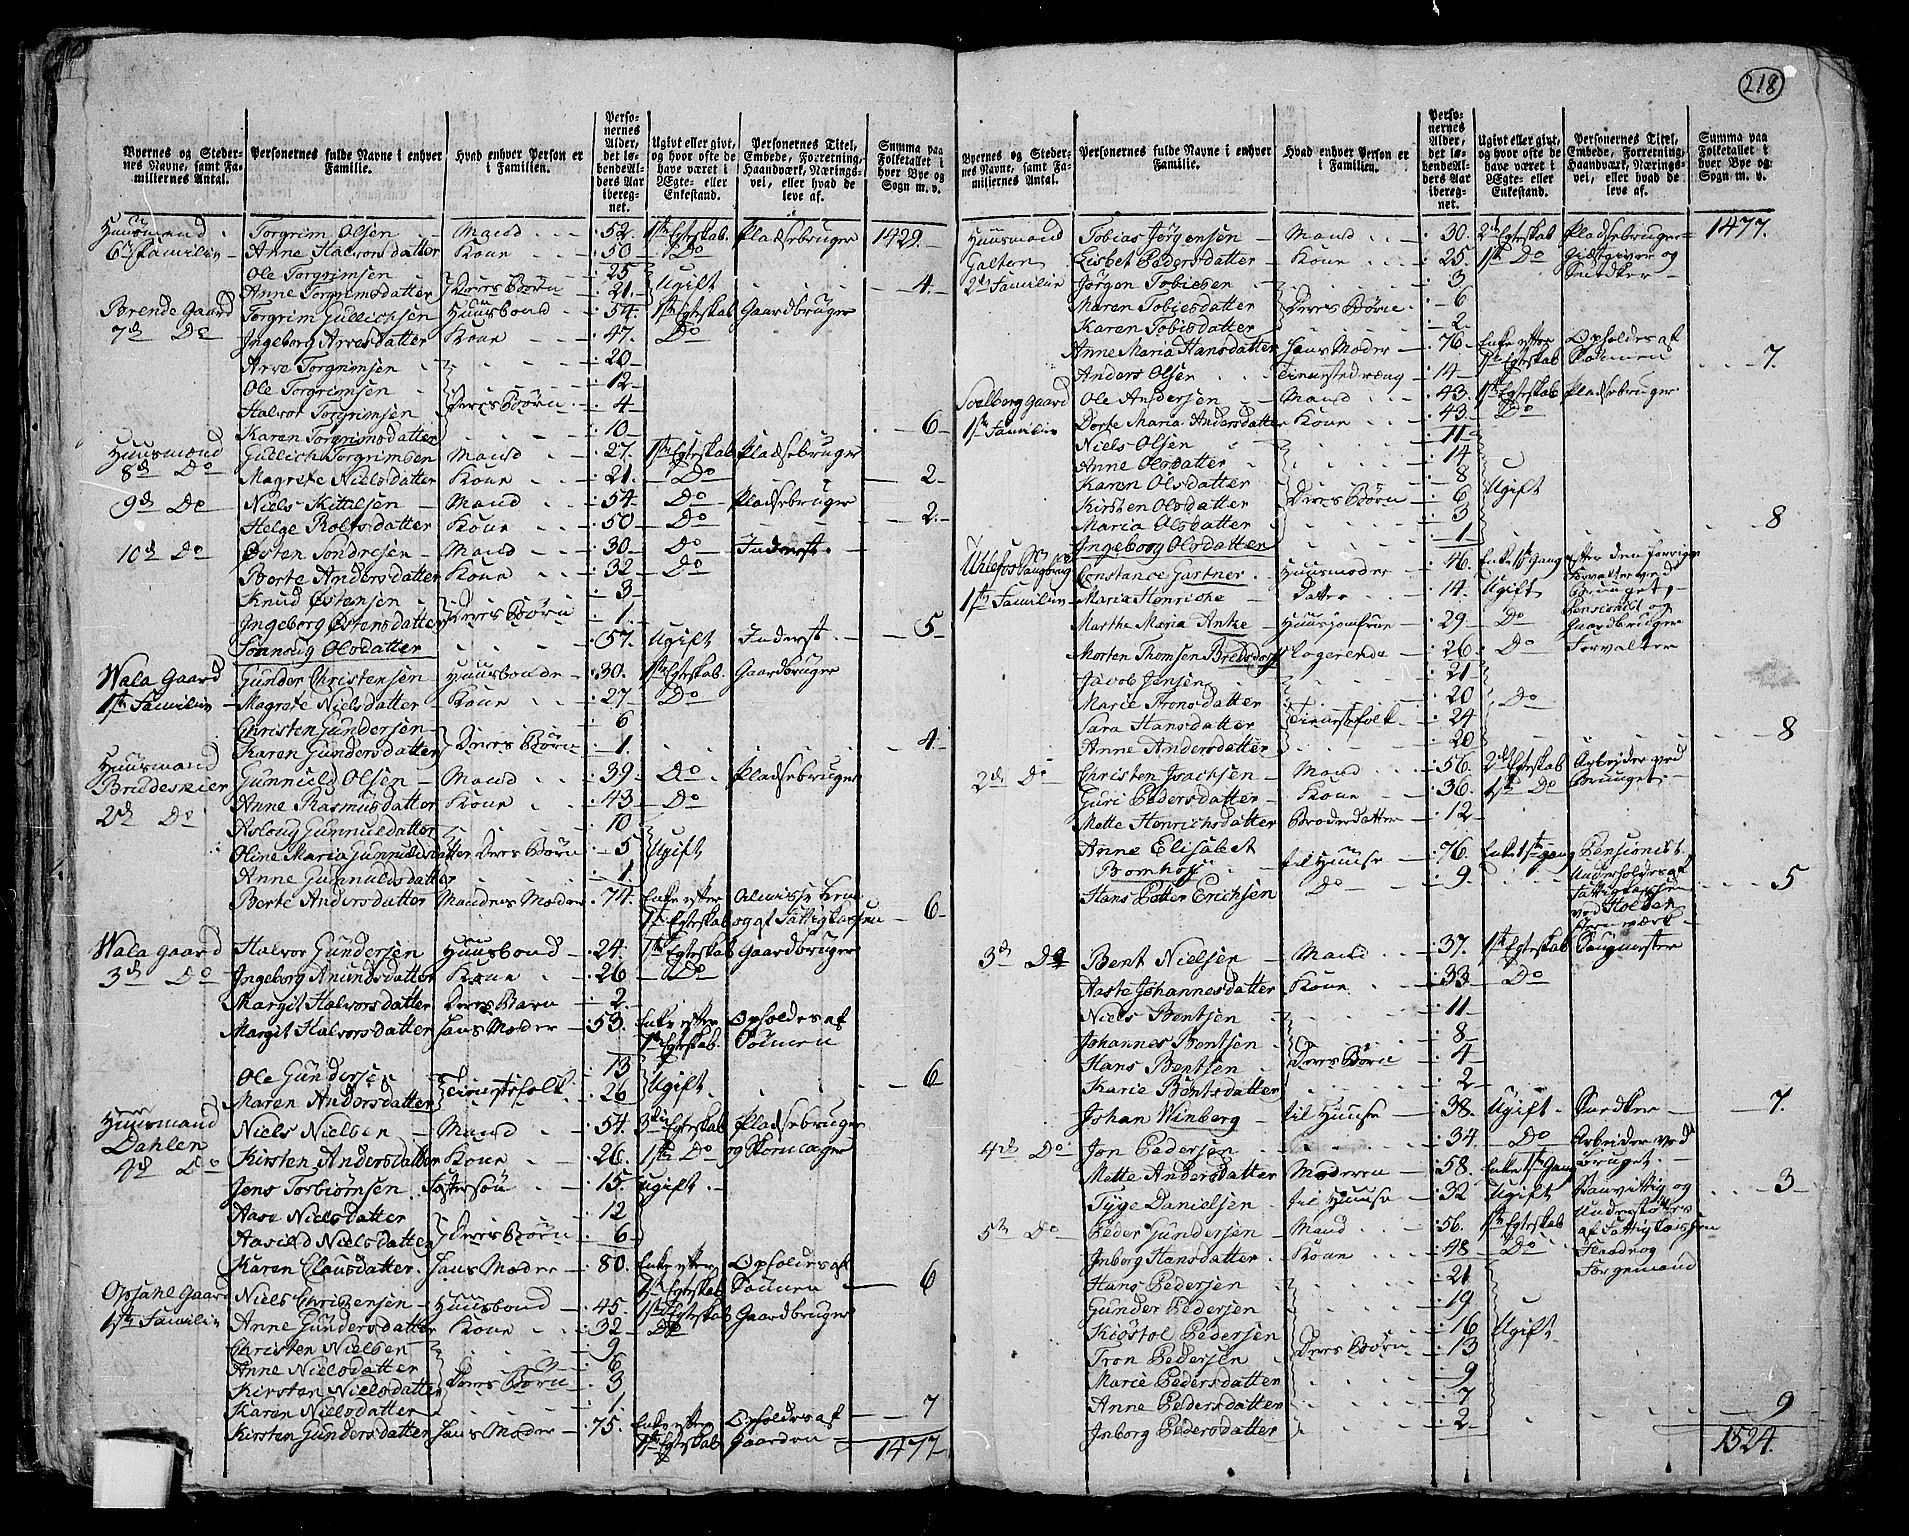 218
Byernes og Stedernes Navne, samt Familiernes Antal. | Personernes fulde Navne i enhver Familie. | Hvad enhver Person er i Familien. | Personernes Alder, det løbende Alders Aar iberegnet. | Ugivt eller givt, og hvor ofte de have været i Ægte- eller Enkestand. | Personernes Titel, Embede, Forretning, Haandværk, Næringsvei, eller hvad de leve af. | Summa paa Folketallet i hver Bye og Sogn m. v.
Huusmænd | Torgrim Olsen | Mand | 52. | 1ste Egteskab. | Pladsebruger | 1429.
6te Familie | Anne Halvorsdatter | Kone | 50 | Do
Ole Torgrimsen | 25
Anne Torgrimsdatter | Deres Børn | 21. | Ugift | 4.
Brende Gaard | Torgrim Gullichsen | Huusbond | 54. | 1ste Egteskab | Gaardbruger
7de Do | Ingeborg Arvesdatter | Kone | 47. | Do
Arve Torgrimsen | 20
Ole Torgrimsen | 12
Halvor Torgrimsen | Deres Børn | 4
Karen Torgrimsdatter | 10 | 6
Huusmænd | Gullich Torgrimsen | Mand | 27. | 1ste Egteskab | Pladsebruger
8de Do | Magrete Nielsdatter | Kone | 21. | Do | 2
9de Do | Niels Kittelsen | Mand | 54. | Do | Pladsebruger
Helge Rolfsdatter | Kone | 50 | Do | 2.
10de Do | Østen Sondresen | Mand | 30. | Do | Inderst.
Berte Andersdatter | Kone | 32 | Do
Knud Østensen | 3
Ingeborg Østensdatter | Deres Børn | 1.
Sonnoug Olsdatter | 57. | Ugift | Inderst. | 5
Wala Gaard | Gunder Christensen | Huusbonde | 30. | 1ste Egteskab. | Gaardbruger
1ste Familie | Magrete Nielsdatter | Kone | 27 | Do
Christen Gundersen | 6
Karen Gundersdatter | Deres Børn | 1. | 4.
Huusmænd | Gunnild Olsen | Mand | 39. | Do | Pladsebruger
Brudeskier | Anne Rasmusdatter | Kone | 43 | Do
2de Do | Aslaug Gunnuldatter | 10
Oline Maria Gunnuldsdatter | Deres Børn | 5 | Ugift
Anne Gunnuldsdatter | 1
Berte Andersdatter | Mandens Moder | 74. | Enke efter | Almisse
1ste Egteskab | og af Fattigkassen | 6
Wala Gaard | Halvor Gundersen | Huusbond | 24. | 1ste Egteskab | Gaardbruger
3de Do | Ingeborg Anundsdatter | Kone | 26 | Do
Margit Halvorsdatter | Deres Barn | 2.
Margit Halvorsdatter | Hans Moder | 53. | Enke efter | Opholdes af
1ste Egteskab. | Sønnen
Ole Gundersen | 13
Maren Andersdatter | Tienestefolk | 26 | Ugift. | 6
Huusmænd | Niels Nielsen | Mand | 54. | 3die Egteskab | Pladsebruger
Dahlen | Kirsten Andersdatter | Kone | 26. | 1ste Do | og Skomager
4de Do | Jens Torbiørnsen | Fostersøn | 15. | Ugift.
Aase Nielsdatter | 12
Aasild Nielsdatter | Deres Børn | 6
Karen Clausdatter | Hans Moder | 80. | Enke efter | Opholdes af
1ste Egteskab | Sønnen | 6
Opsahl Gaard | Niels Christensen | Huusbond | 45. | 1ste Egteskab | Gaardbruger
1ste Familie | Anne Gundersdatter | Kone | 32 | Do
Christen Nielsen | 9
Anne Nielsdatter | 6
Kirsten Nielsdatter | Deres Børn | 3
Karen Nielsdatter | 1. | 7
Kirsten Gundersdatter | Hans Moder | 75. | Enke efter | Opholdes af
1ste Egteskab | Gaarden | 1477
Byernes og Stedernes Navne, samt Familiernes Antal. | Personernes fulde Navne i enhver Familie. | Hvad enhver Person er i Familien. | Personernes Alder, det løbende Alders Aar iberegnet. | Ugivt eller givt, og hvor ofte de have været i Ægte- eller Enkestand. | Personernes Titel, Embede, Forretning, Haandværk, Næringsvei, eller hvad de leve af. | Summa paa Folketallet i hver Bye og Sogn m. v.
Huusmænd | Tobias Jørgensen | Mand | 30. | 2det Egteskab | Pladsebruger | 1477.
Galten | Lisbet Pedersdatter | Kone | 25 | 1ste Do | Giestgiver og
2de Familie | Jørgen Tobiesen | 3 | Snedker
Maren Tobiesdatter | Deres Børn | 6
Karen Tobisdatter | 2.
Anne Maria Hansdatter | Hans Moder | 76. | Enke efter | Opholdes af
1ste Egteskab | Sønnen | 7.
Anders Olsen | Tienestedreng | 14
Solberg Gaard | Ole Andersen | Mand | 43. | 1ste Egteskab | Pladsebruger
1ste Familie | Dorte Maria Andersdatter | Kone | 43. | Do
Niels Olsen | 11
Anne Olsdatter | 14
Karen Olsdatter | 8
Kirsten Olsdatter | Deres Børn | 6 | Ugift
Maria Olsdatter | 3 | 8
Ingeborg Olsdatter | 1
Uhlefos Saugbrug | Constance Gartner | Huusmoder | 46. | Enke 1ste Gang | efter den forrige
1ste Familie | Maria Henriche | Datter | 14. | Ugift | Forvalter ved Bruuget,
Marthe Maria Anke | Huusjomfrue | 29. | Do | Pensionist og Gaardbruger
Morten Thomsen Bredsdorf | Logerende | 26 | Do | Forvalter
Jacob Jensen | 21
Marie Tronsdatter | 20 | Do
Sara Hansdatter | Tienestefolk | 24
Anne Andersdatter | 20 | 8
2de Do | Christen Isachsen | Mand | 56. | 2det Egteskab | Arbeider ved
Guri Pedersdatter | Kone | 36. | 1ste Do | Bruuget.
Mette Henrichsdatter | Broderdatter | 12
Anne Elisabet
Bomhoff | til Huuse | 76. | Enke 1ste gang | Pensionist.
Hans Petter Erichsen | Do | 9. | Underholdes af Fattigkassen ved Holden Jernværk | 5
3de Do | Bent Nielsen | Mand | 37. | 1ste Egteskab | Saugmester
Aaste Johannesdatter | Kone | 33 | Do
Niels Bentsen | 11
Johannes Bentsen | 8
Hans Bentsen | Deres Børn | 4
Karie Bentsdatter | 2
Johan Winberg | til Huuse | 38. | Ugift. | Snedker | 7.
4de Do | Jon Pedersen | 34. | Do | Arbeider ved
Mette Andersdatter | Moderen | 58. | Enke 1ste Gang | Bruget.
Tyge Danielsen | til Huuse | 32 | Ugift | Vanvittig og | 3
5te Do | Peder Gundersen | Mand | 56. | 1ste Egteskab | Understøttes af Fattigkassen
Inborg Hansdatter | Kone | 48 | Do
Hans Pedersen | 21
Gunder Pedersen | 19
Kiøstol Pedersen | 16 | Ugift
Tron Pedersen | Deres Børn | 13
Marie Pedersdatter | 9
Anne Pedersdatter | 7
Inborg Pedersdatter | 2 | 9
1524.